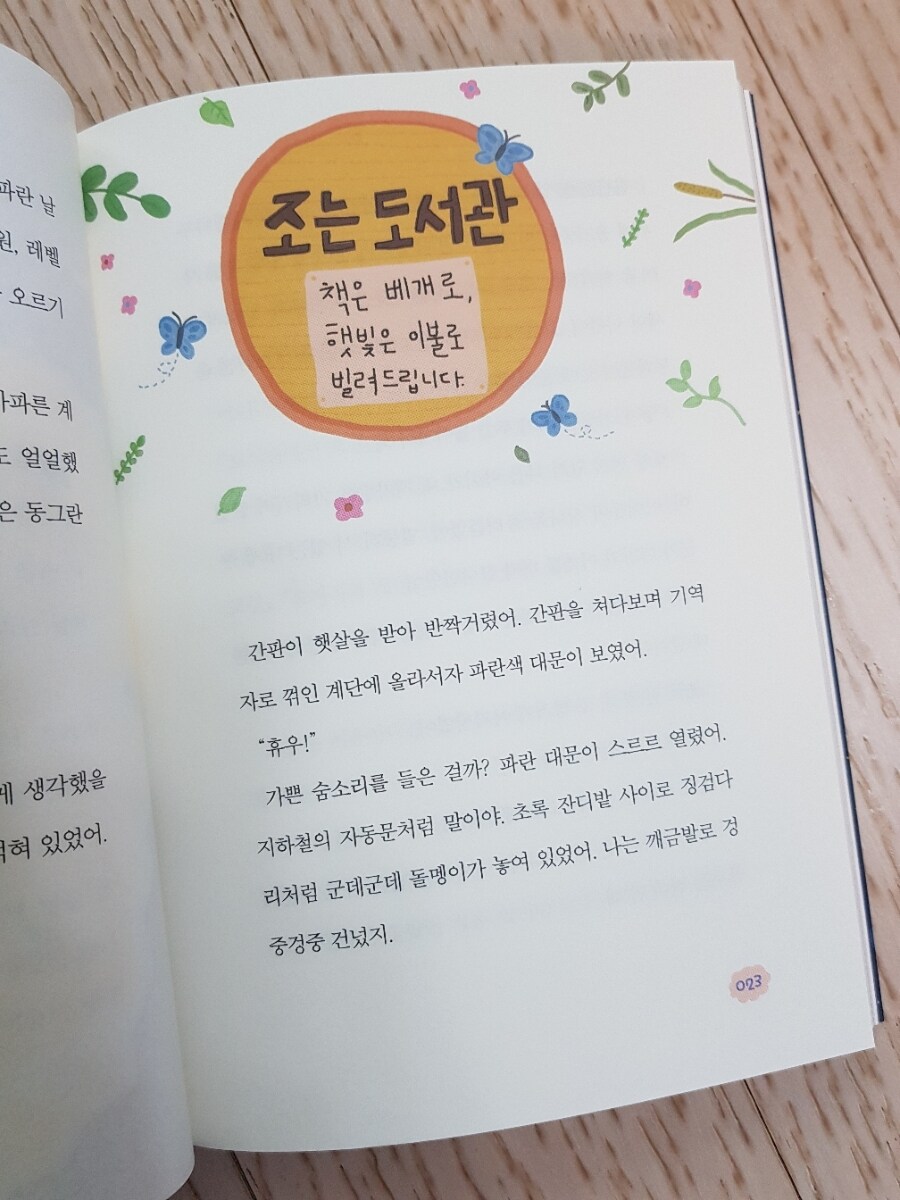 파란 날
원, 레벨
오르기
가파른 계
도 얼얼했
은 동그란
게 생각했을
적혀 있었어.
조는 도서관
책은 베개로,
햇빛은 이불로
빌려드립니다.
간판이 햇살을 받아 반짝거렸어. 간판을 쳐다보며 기역
자로 꺾인 계단에 올라서자 파란색 대문이 보였어.
“휴우!”
가쁜 숨소리를 들은 걸까? 파란 대문이 스르르 열렸어.
지하철의 자동문처럼 말이야. 초록 잔디밭 사이로 징검다
리처럼 군데군데 돌멩이가 놓여 있었어. 나는 깨금발로 겅
중겅중 건넜지.
023